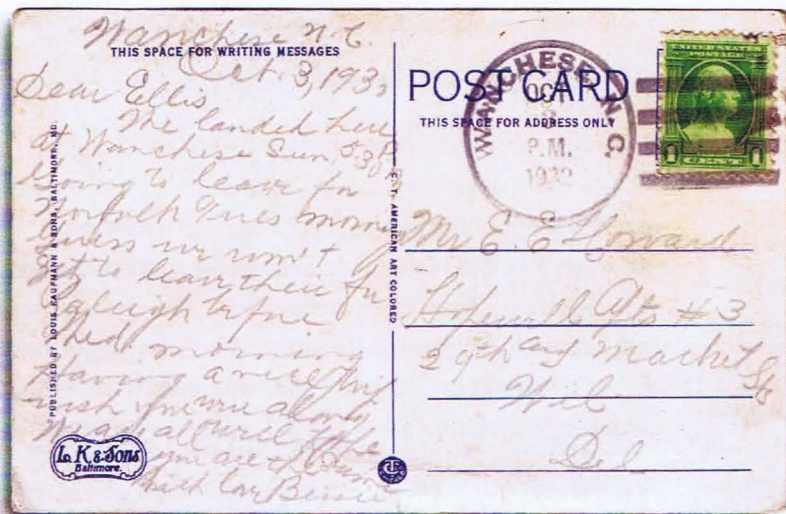 Wanchese N.C.
THIS SPACE FOR WRITING MESSAGES
Oct. 3, 1932
Dear Ellis
We landed here
at Wanchese Sun. 5:30
Going to leave for
Norfolk Tues morning
Guess we won't
get to leave there for
Raleigh before
Wed. morning
Having a nice trip
wish you were along
We are all well hope
you are the same
With love Bessie
PUBLISHED BY LOUIS KAUFMANN & SONS, BALTIMORE, MD.
L.K. & Sons
Baltimore.
C.T. AMERICAN ART COLORED
POST CARD
THIS SPACE FOR ADDRESS ONLY
WANCHESE, N.C.
OCT
3
P.M.
1932
UNITED STATES
POSTAGE
1 CENT 1
Mr E. E. Howard
Hopewell Apts #3
29th and Market St
Wil
Del